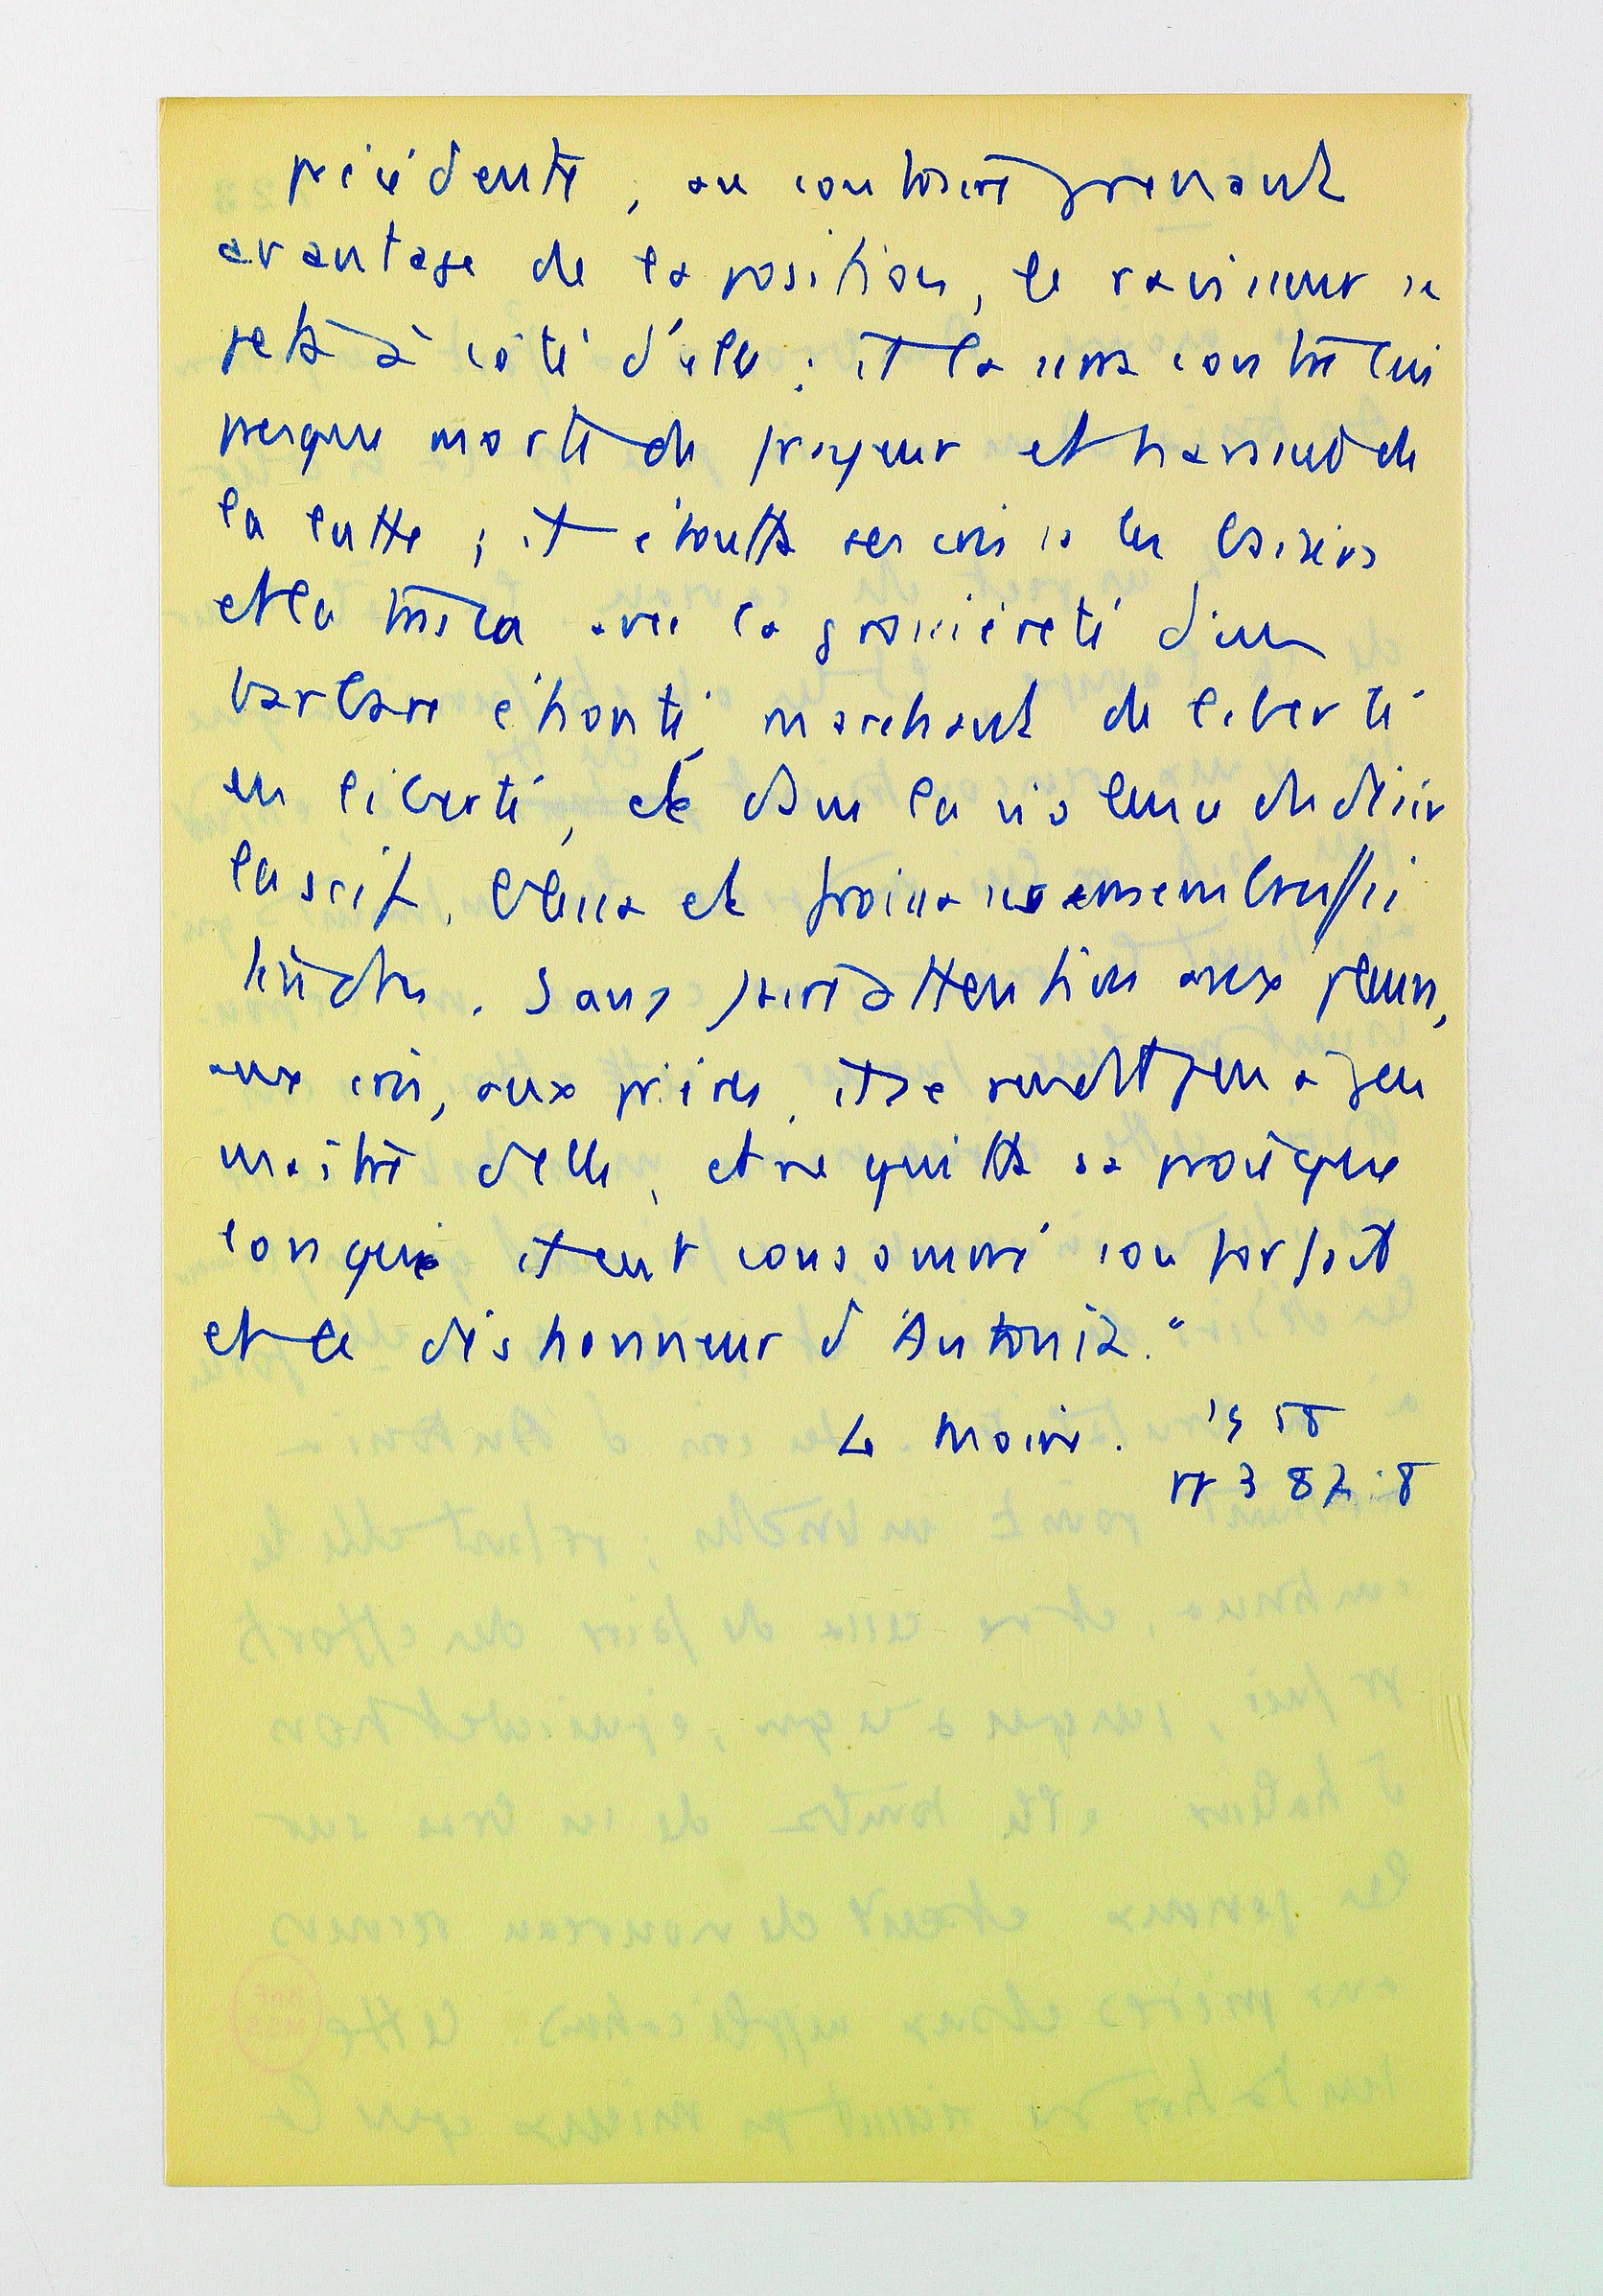 précédente ; au contraire prenant
avantage de la position, le ravisseur se
jeta à côté d'elle ; il la serra contre lui
presque morte de frayeur et harassée de
la lutte ; il étouffa ses cris sous les baisers
et la traita avec la grossièreté d'un
barbare éhonté, marchant de liberté
en liberté, et dans la violence du désir
lascif, blessa et froissa ses membres si
tendres. Sans faire attention aux pleurs,
aux cris, aux prières, il se rendit peu à peu
maître d'elle, et ne quitta sa proie que
lorsqu'il eut consommé son forfait
et le déshonneur d'Antonia."
Le Moine. 1958
pp 387-8